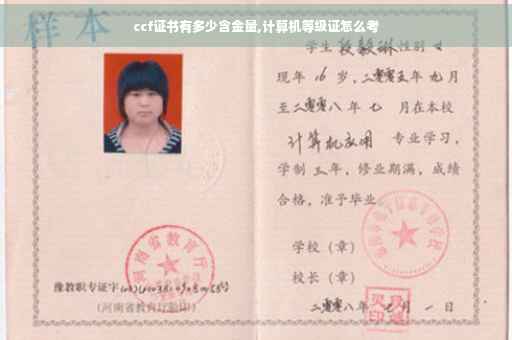 ccf证书有多少含金量,计算机等级证怎么考
样本
学生段毅琳性别女
现年16岁,二零零五年九月
至二零零八年七月在本校
计算机应用专业学习,
学制三年,修业期满,成绩
合格,准予毕业。
学校(章)
校长(章)
二零零八年七月一日
河南省教育厅
豫教职专证字
(河南省教育厅验印)